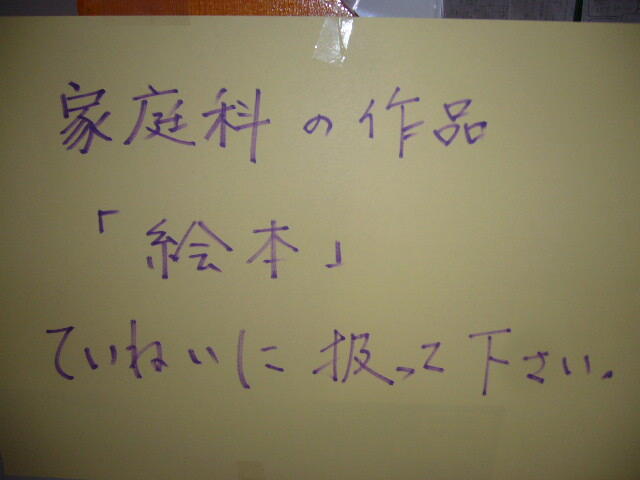 家庭科の作品
「絵本」
ていねいに扱って下さい。